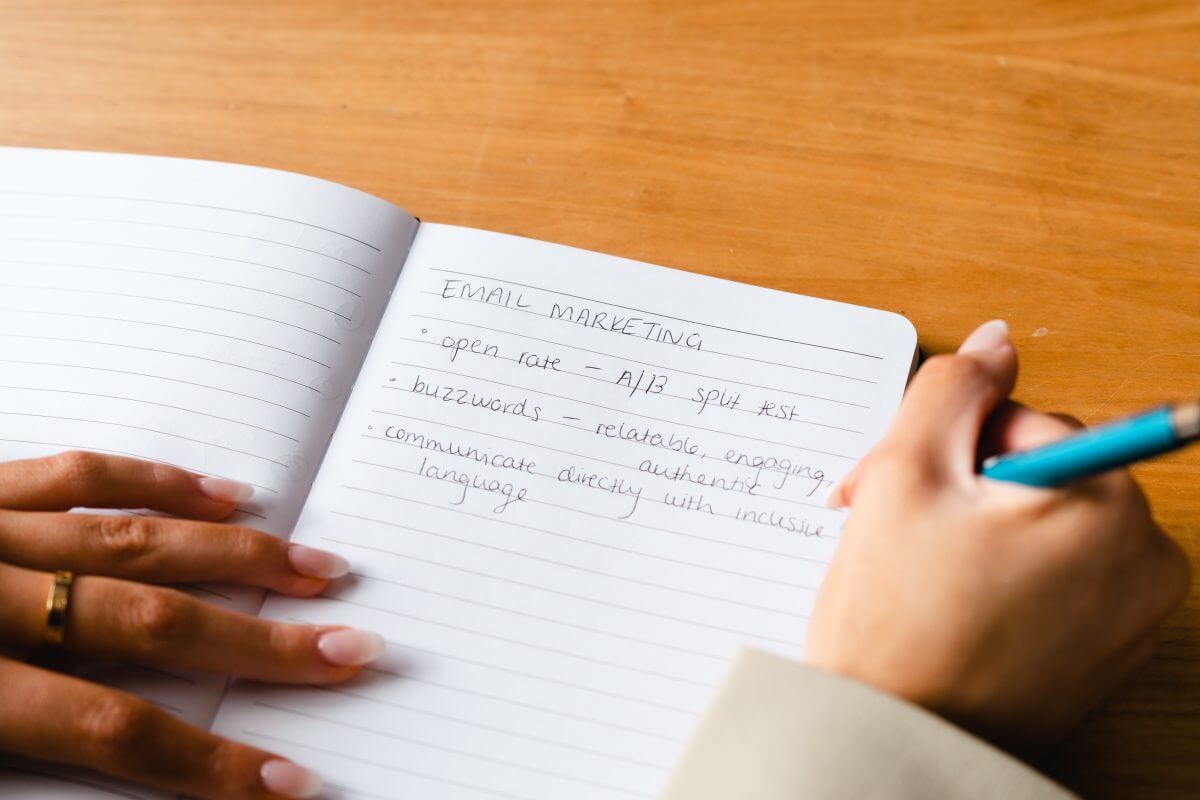 EMAIL MARKETING
• open rate – A/B split test
• buzzwords – relatable, engaging,
authentic
• communicate directly with inclusive
language